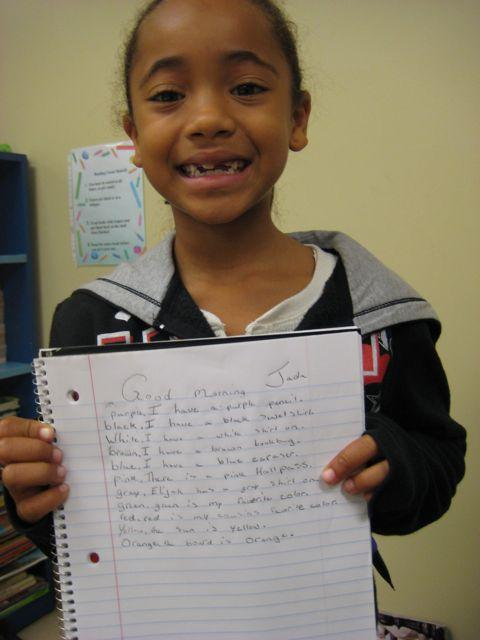 Good Morning Jada
purple, I have a purple pencil.
black, I have a black swetshirt
White, I have a white shirt on.
brown, I have a brown bookbag.
blue, I have a blue earaser.
pink, There is a pink Hall pass.
gray, Elijah has a gray shirt on
green, green is my favorite color.
red, red is my cousins favorite color.
Yellow, the sun is yellow.
Orange, a board is Orange.